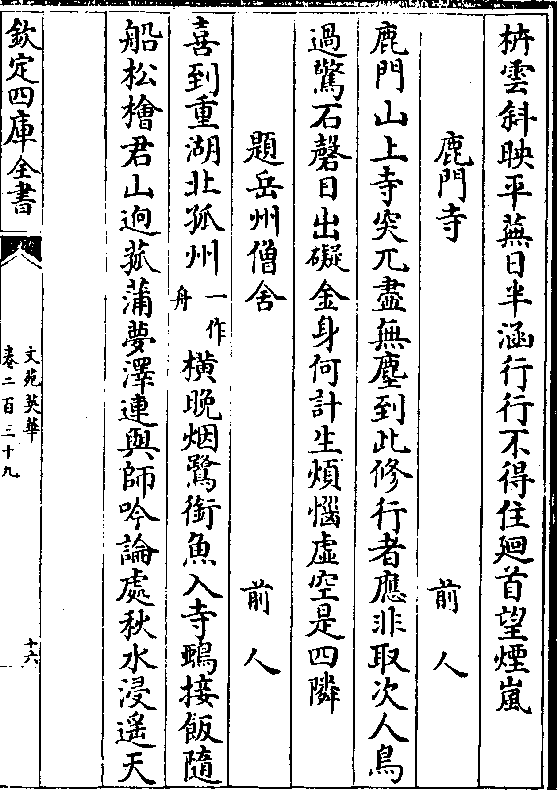 枿雲斜映平蕪日半涵行行不得住廻首望煙嵐
鹿門寺 前人
鹿門山上寺突兀盡無塵到此修行者應非取次人鳥
過驚石磬日出礙金身何計生煩惱虛空是四隣
題岳州僧舍 前人
喜到重湖北孤州一作舟横晚烟鷺銜魚入寺鵶接飯隨
船松檜君山逈菰蒲夢澤連與師吟論處秋水浸遥天
欽定四庫全書
文苑英華
卷二百三十九
十六